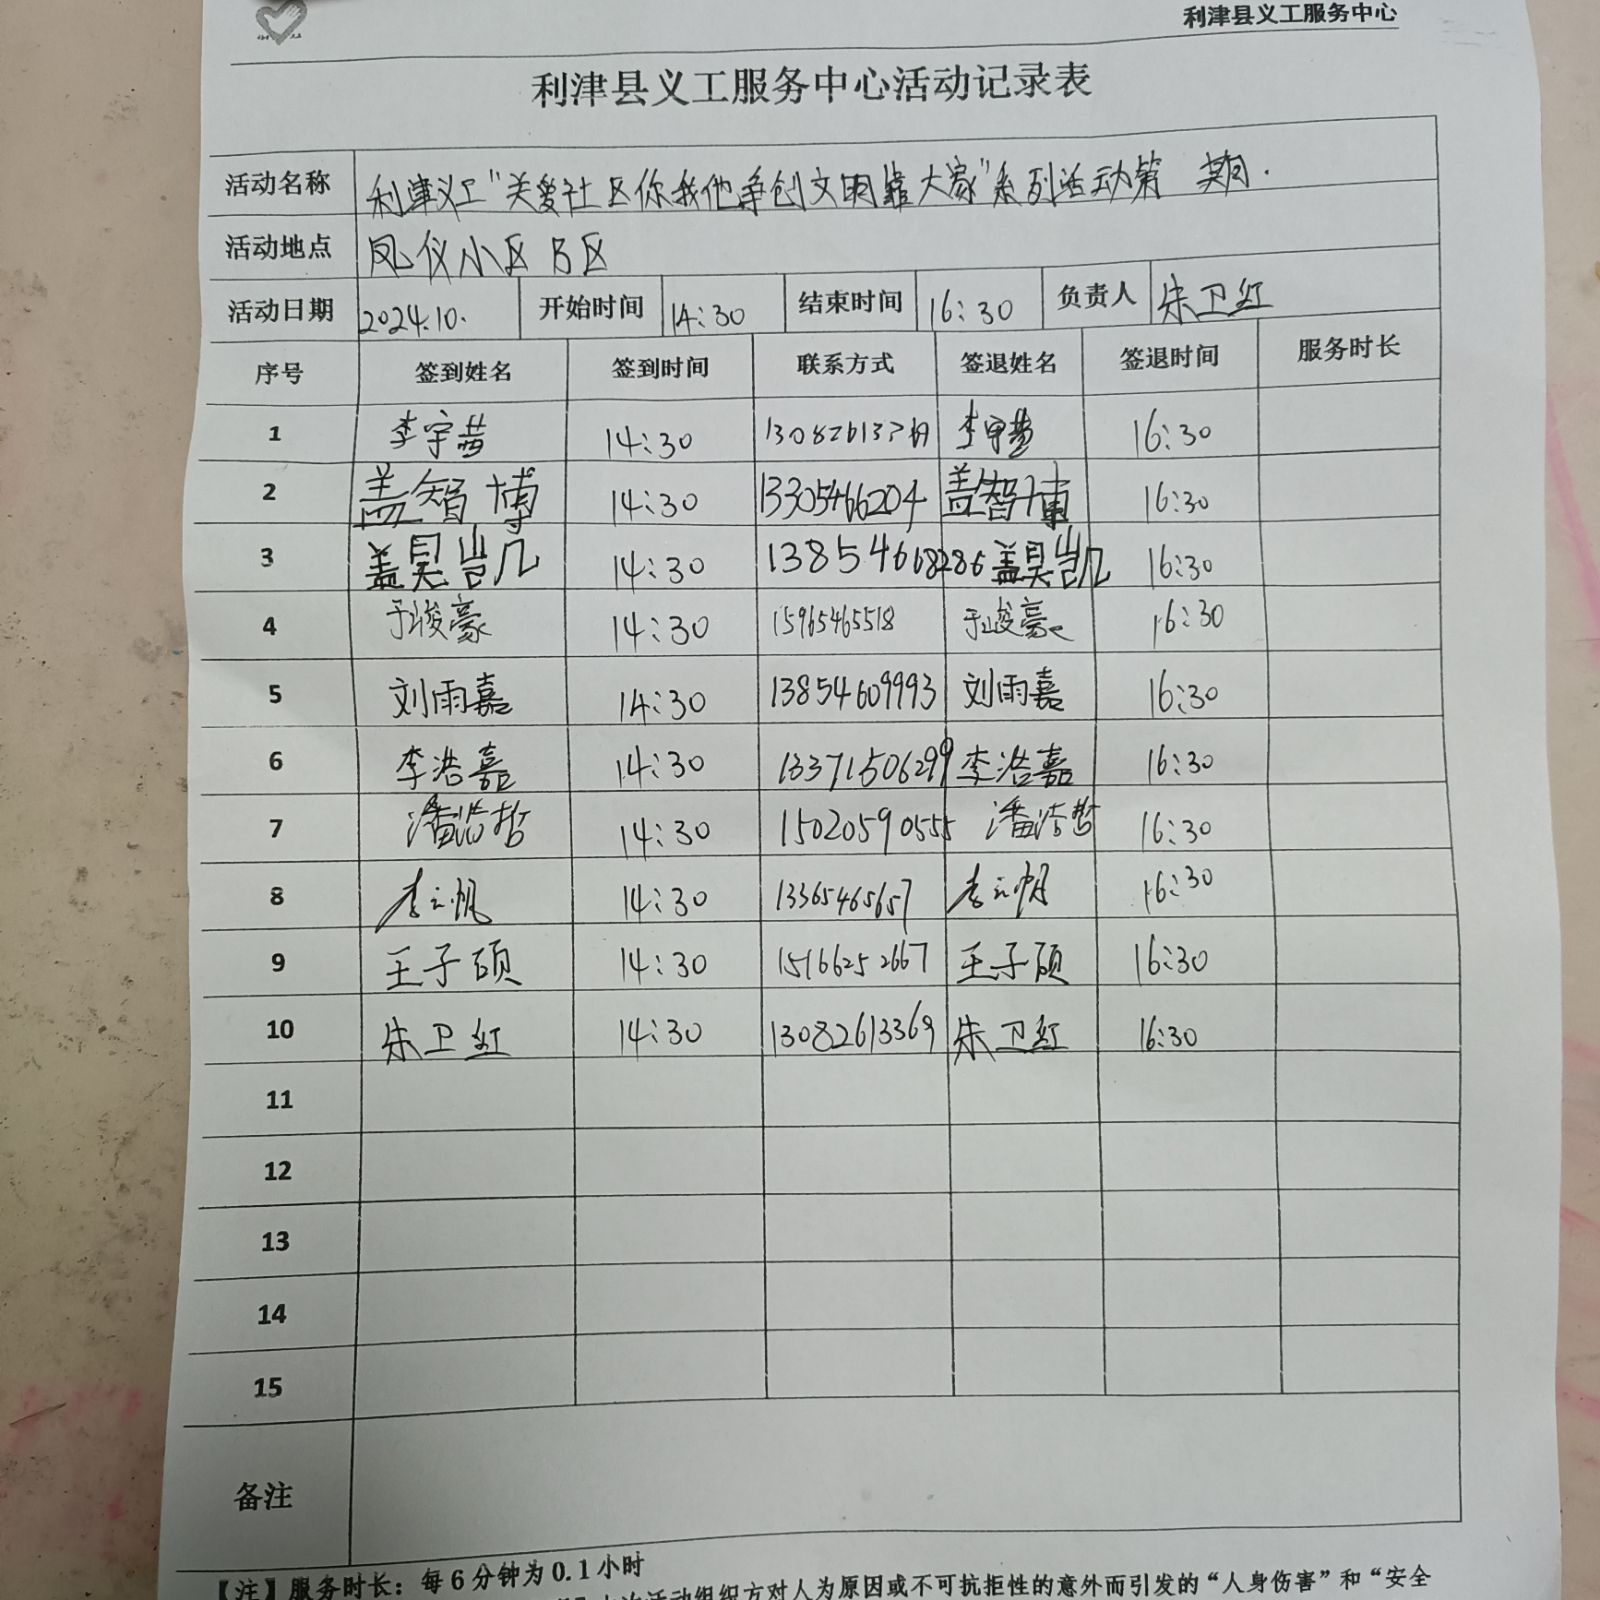 利津县义工服务中心
利津县义工服务中心活动记录表
活动名称 利津义工"关爱社区你我他争创文明靠大家"系列活动第 期.
活动地点 凤仪小区B区
活动日期 2024.10. 开始时间 14:30 结束时间 16:30 负责人 朱卫红
序号 签到姓名 签到时间 联系方式 签退姓名 签退时间 服务时长
1 李宇茜 14:30 李宇茜 16:30
2 盖智博 14:30 13305466204 盖智博 16:30
3 盖昊凯 14:30 13854668286 盖昊凯 16:30
4 于峻豪 14:30 15965465518 于峻豪 16:30
5 刘雨嘉 14:30 13854609993 刘雨嘉 16:30
6 李浩嘉 14:30 13371506299 李浩嘉 16:30
7 潘浩哲 14:30 15020590555 潘浩哲 16:30
8 李云帆 14:30 13365465657 李云帆 16:30
9 王子硕 14:30 15166252667 王子硕 16:30
10 朱卫红 14:30 13082613369 朱卫红 16:30
11
12
13
14
15
备注
【注】服务时长：每6分钟为0.1小时
次活动组织方对人为原因或不可抗拒性的意外而引发的“人身伤害”和“安全